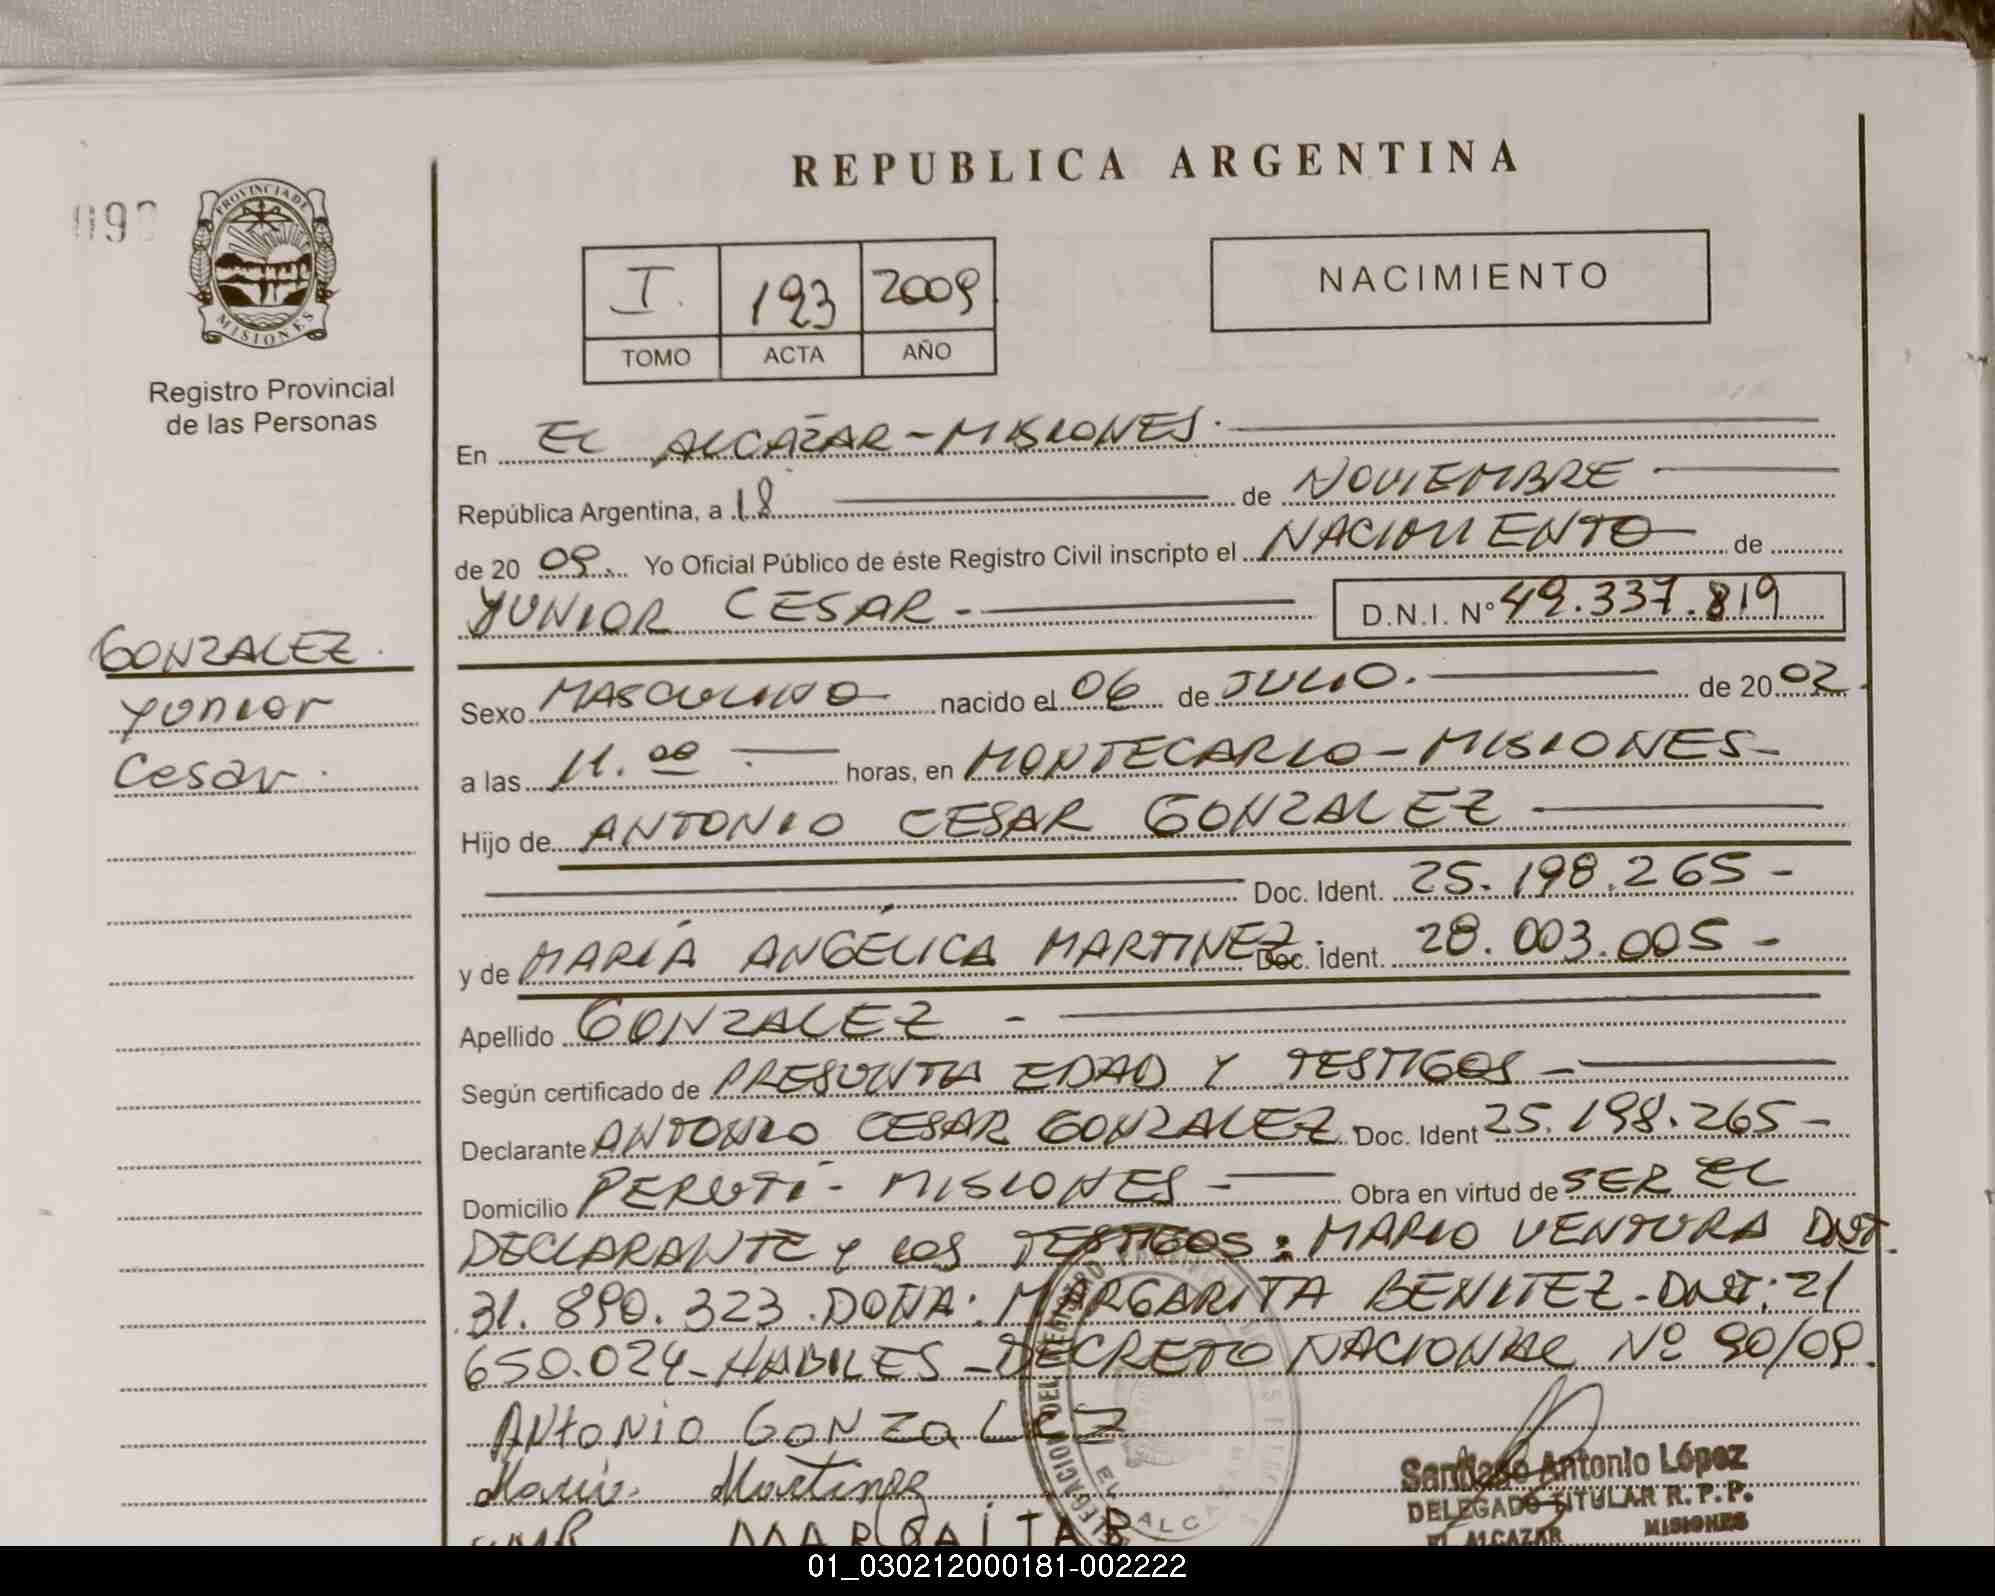 REPUBLICA ARGENTINA
PROVINCIA DE
MISIONES
Registro Provincial
de las Personas
I. 193 2009
TOMO ACTA AÑO
NACIMIENTO
En EL ALCAZAR - MISIONES.
República Argentina, a 18 de NOVIEMBRE
de 20 09. Yo Oficial Público de éste Registro Civil inscripto el NACIMIENTO de
YUNIOR CESAR - D.N.I. N° 49.337.819
GONZALEZ.
Yunior
Cesar.
Sexo MASCULINO nacido el 06 de JULIO. de 20 02.
a las 11.00 horas, en MONTECARLO - MISIONES -
Hijo de ANTONIO CESAR GONZALEZ
Doc. Ident. 25.198.265 -
y de MARÍA ANGÉLICA MARTINEZ. Doc. Ident. 28.003.005 -
Apellido GONZALEZ -
Según certificado de PRESUNTA EDAD Y TESTIGOS -
Declarante ANTONIO CESAR GONZALEZ Doc. Ident 25.198.265 -
Domicilio PERUTÍ - MISIONES - Obra en virtud de SER EL
DECLARANTE y LOS TESTIGOS: MARIO VENTURA DNI.
31.890.323. DOÑA: MARGARITA BENITEZ - DNI: 21
650.024 - HABILES - DECRETO NACIONAL Nº 90/09.
ANtONiO GONZaLEZ
Maria Martinez
MARGAITAB
Santiago Antonio López
DELEGADO TITULAR R. P. P.
EL ALCAZAR MISIONES
01_030212000181-002222